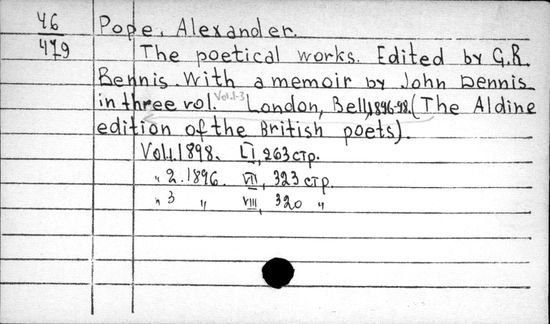 46
479
Pope, Alexander.
The poetical works. Edited by G.R.
Bennis. With a memoir by John Dennis
in three vol. Vol.1-3 London, Bell, 1896-98. (The Aldine
edition of the British poets).
Vol.1.1898. LI, 263 стр.
" 2.1896. VII, 323 стр.
" 3 " VIII, 320 "